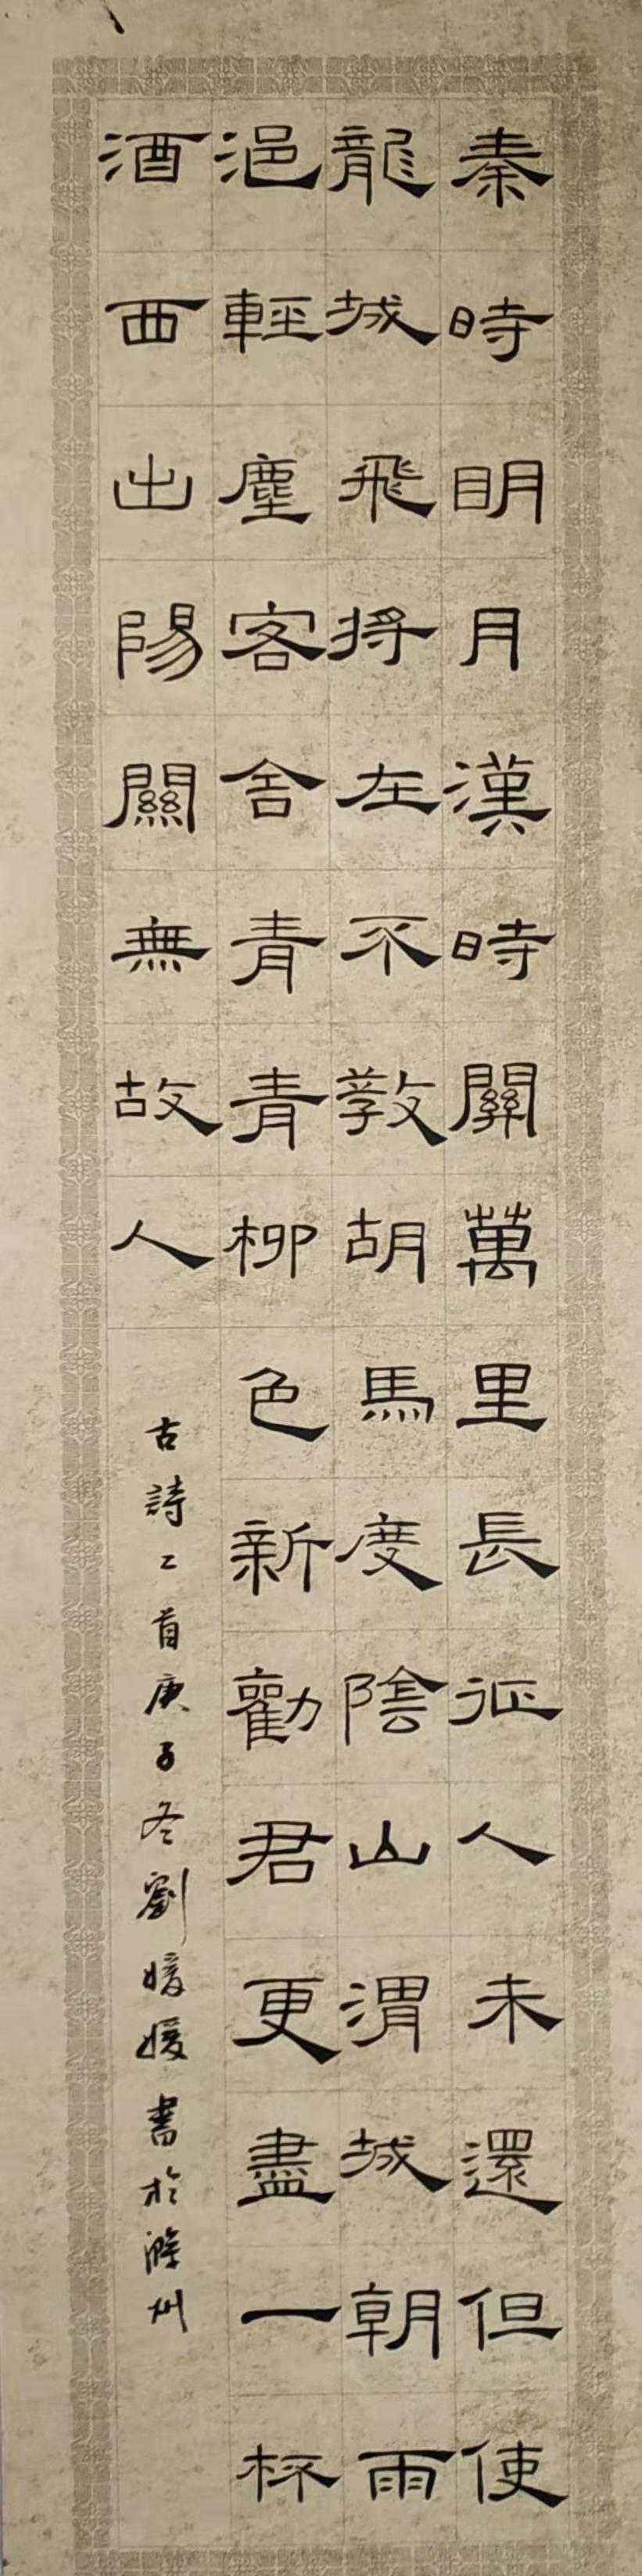 秦時明月漢時關萬里長征人未還但使
龍城飛將在不教胡馬度陰山渭城朝雨
浥輕塵客舍青青柳色新勸君更盡一杯
酒西出陽關無故人
古詩二首庚子冬劉媛媛書於滁州